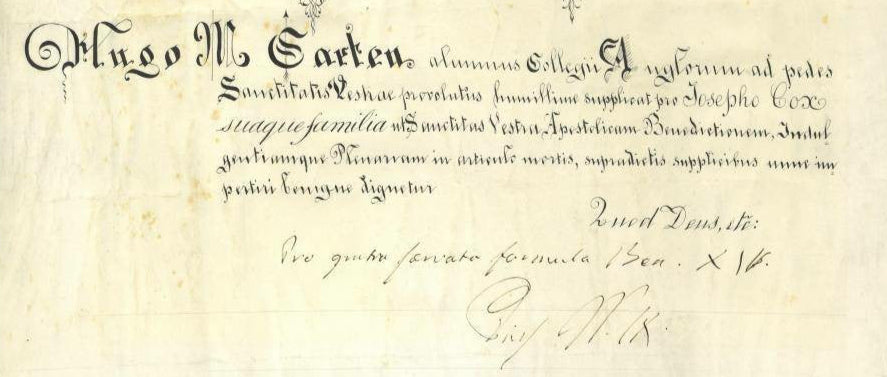 Hugo M Carten alumnus Collegii Anglorum ad pedes
Sanctitatis Vestrae provolutus humillime supplicat pro Josepho Cox
suaque familia ut Sanctitas Vestra Apostolicam Benedictionem, Indul
gentiamque Plenariam in articulo mortis, supradictis supplicibus nunc im
pertiri benigne dignetur
Quod Deus, etc:
Pro gratia servata formula Ben. XIV.
Pius P. IX.